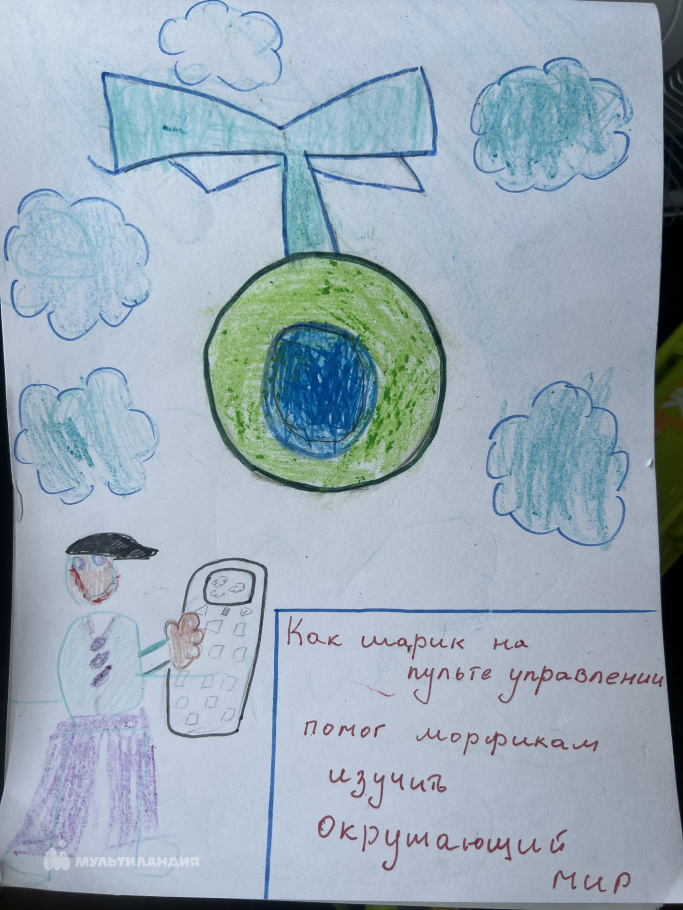 Как шарик на
пульте управлении
помог морфикам
изучить
окружающий
мир
МУЛЬТИЛАНДИЯ